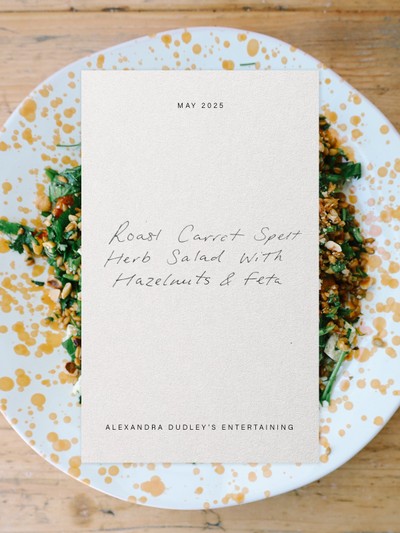 MAY 2025
Roast Carrot Spelt
Herb Salad With
Hazelnuts & Feta
ALEXANDRA DUDLEY'S ENTERTAINING